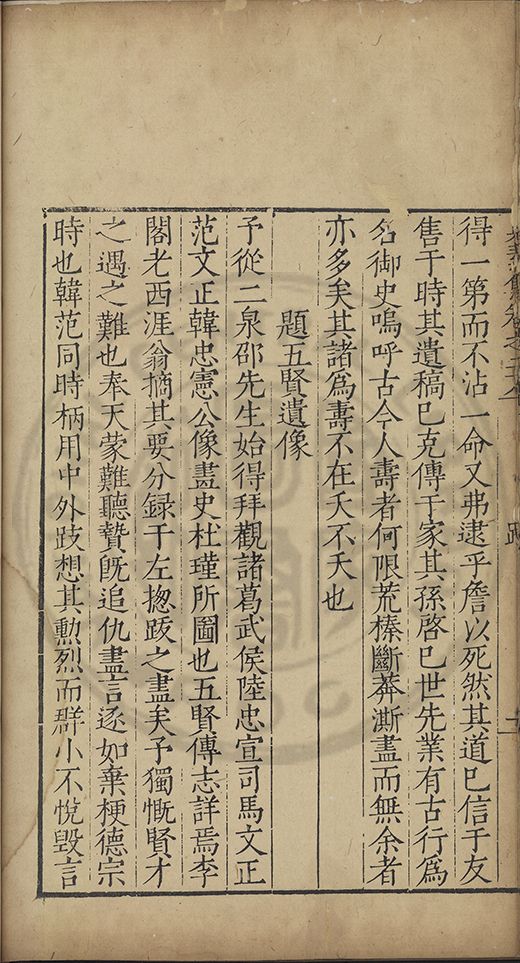 得一第而不沾一命又弗逮乎詹以死然其道已信于友
售于時其遺稿已克傳于家其孫啓已世先業有古行爲
名御史嗚呼古今人壽者何限荒榛斷莽澌盡而無余者
亦多矣其諸爲壽不在夭不夭也
題五賢遺像
予從二泉邵先生始得拜觀諸葛武侯陸忠宣司馬文正
范文正韓忠憲公像畫史杜瑾所圖也五賢傳志詳焉李
閣老西涯翁摘其要分録于左揔跋之盡矣予獨慨賢才
之遇之難也奉天蒙難聽贄旣追仇盡言逐如棄梗德宗
時也韓范同時柄用中外跂想其勳烈而群小不悅毀言